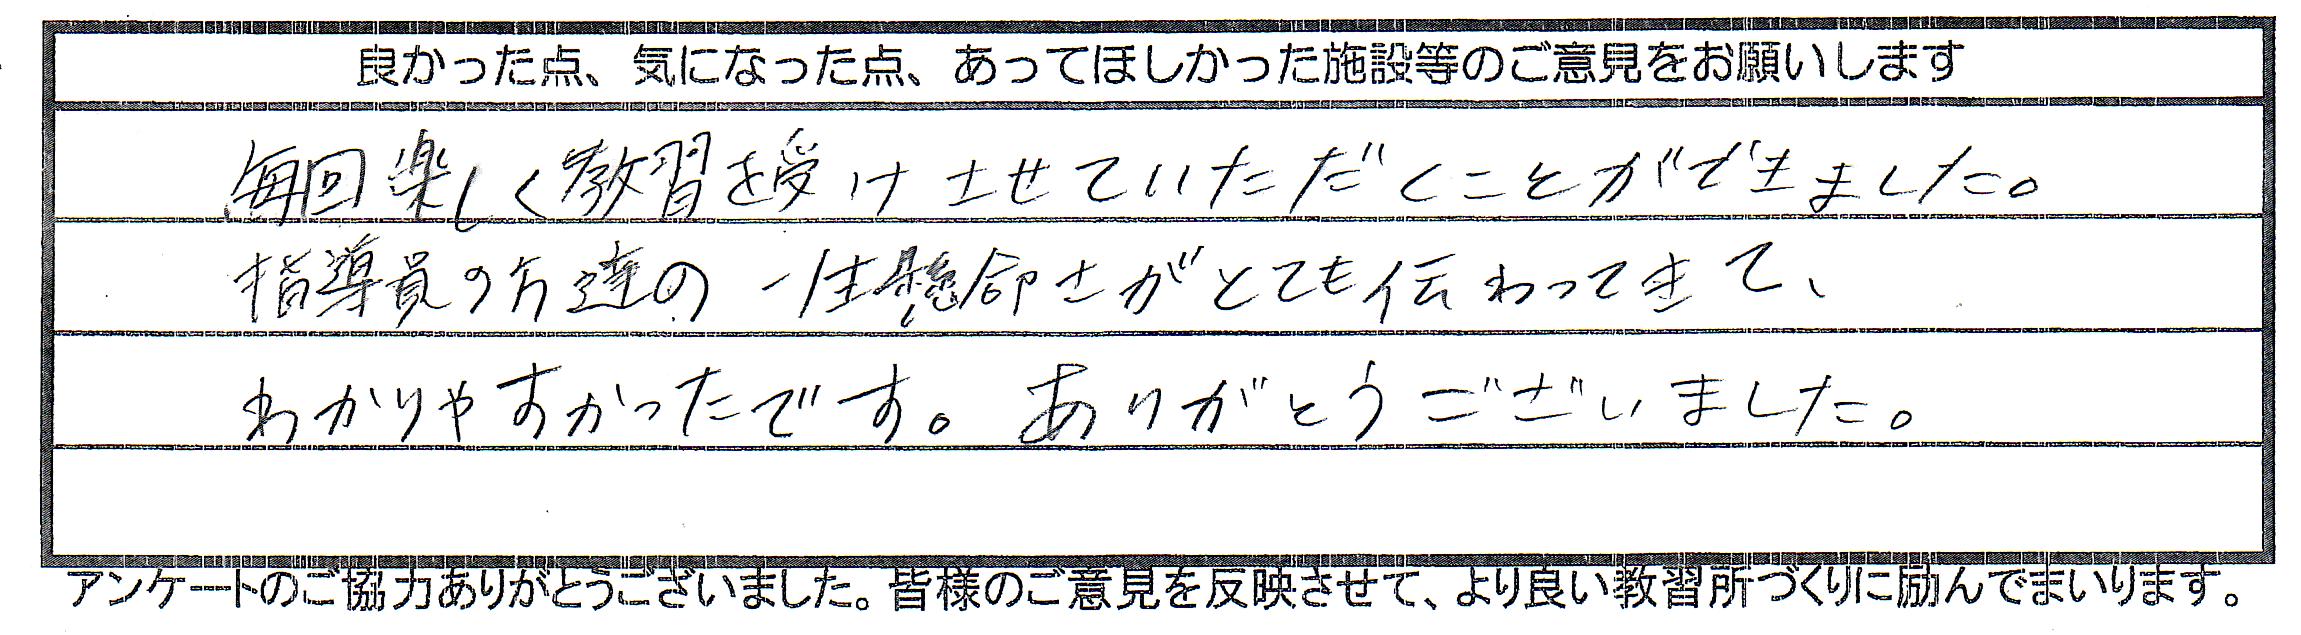 良かった点、気になった点、あってほしかった施設等のご意見をお願いします
毎回楽しく教習を受けさせていただくことができました。
指導員の方達の一生懸命さがとても伝わってきて、
わかりやすかったです。ありがとうございました。
アンケートのご協力ありがとうございました。皆様のご意見を反映させて、より良い教習所づくりに励んでまいります。